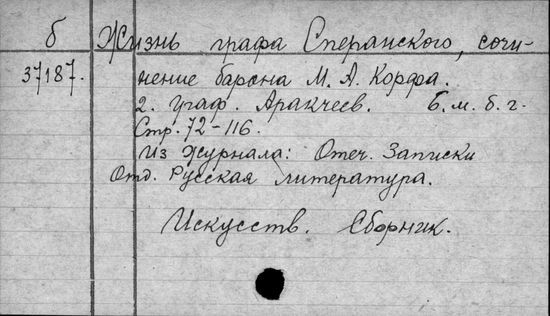 б Жизнь графа Сперанского, сочи-
37187. нение барона М. А. Корфа.
2. граф. Аракчеев. б. м. б. г.
Стр. 72-116.
Из журнала: Отеч. Записки
Отд. Русская литература.
Искусств. Сборник.